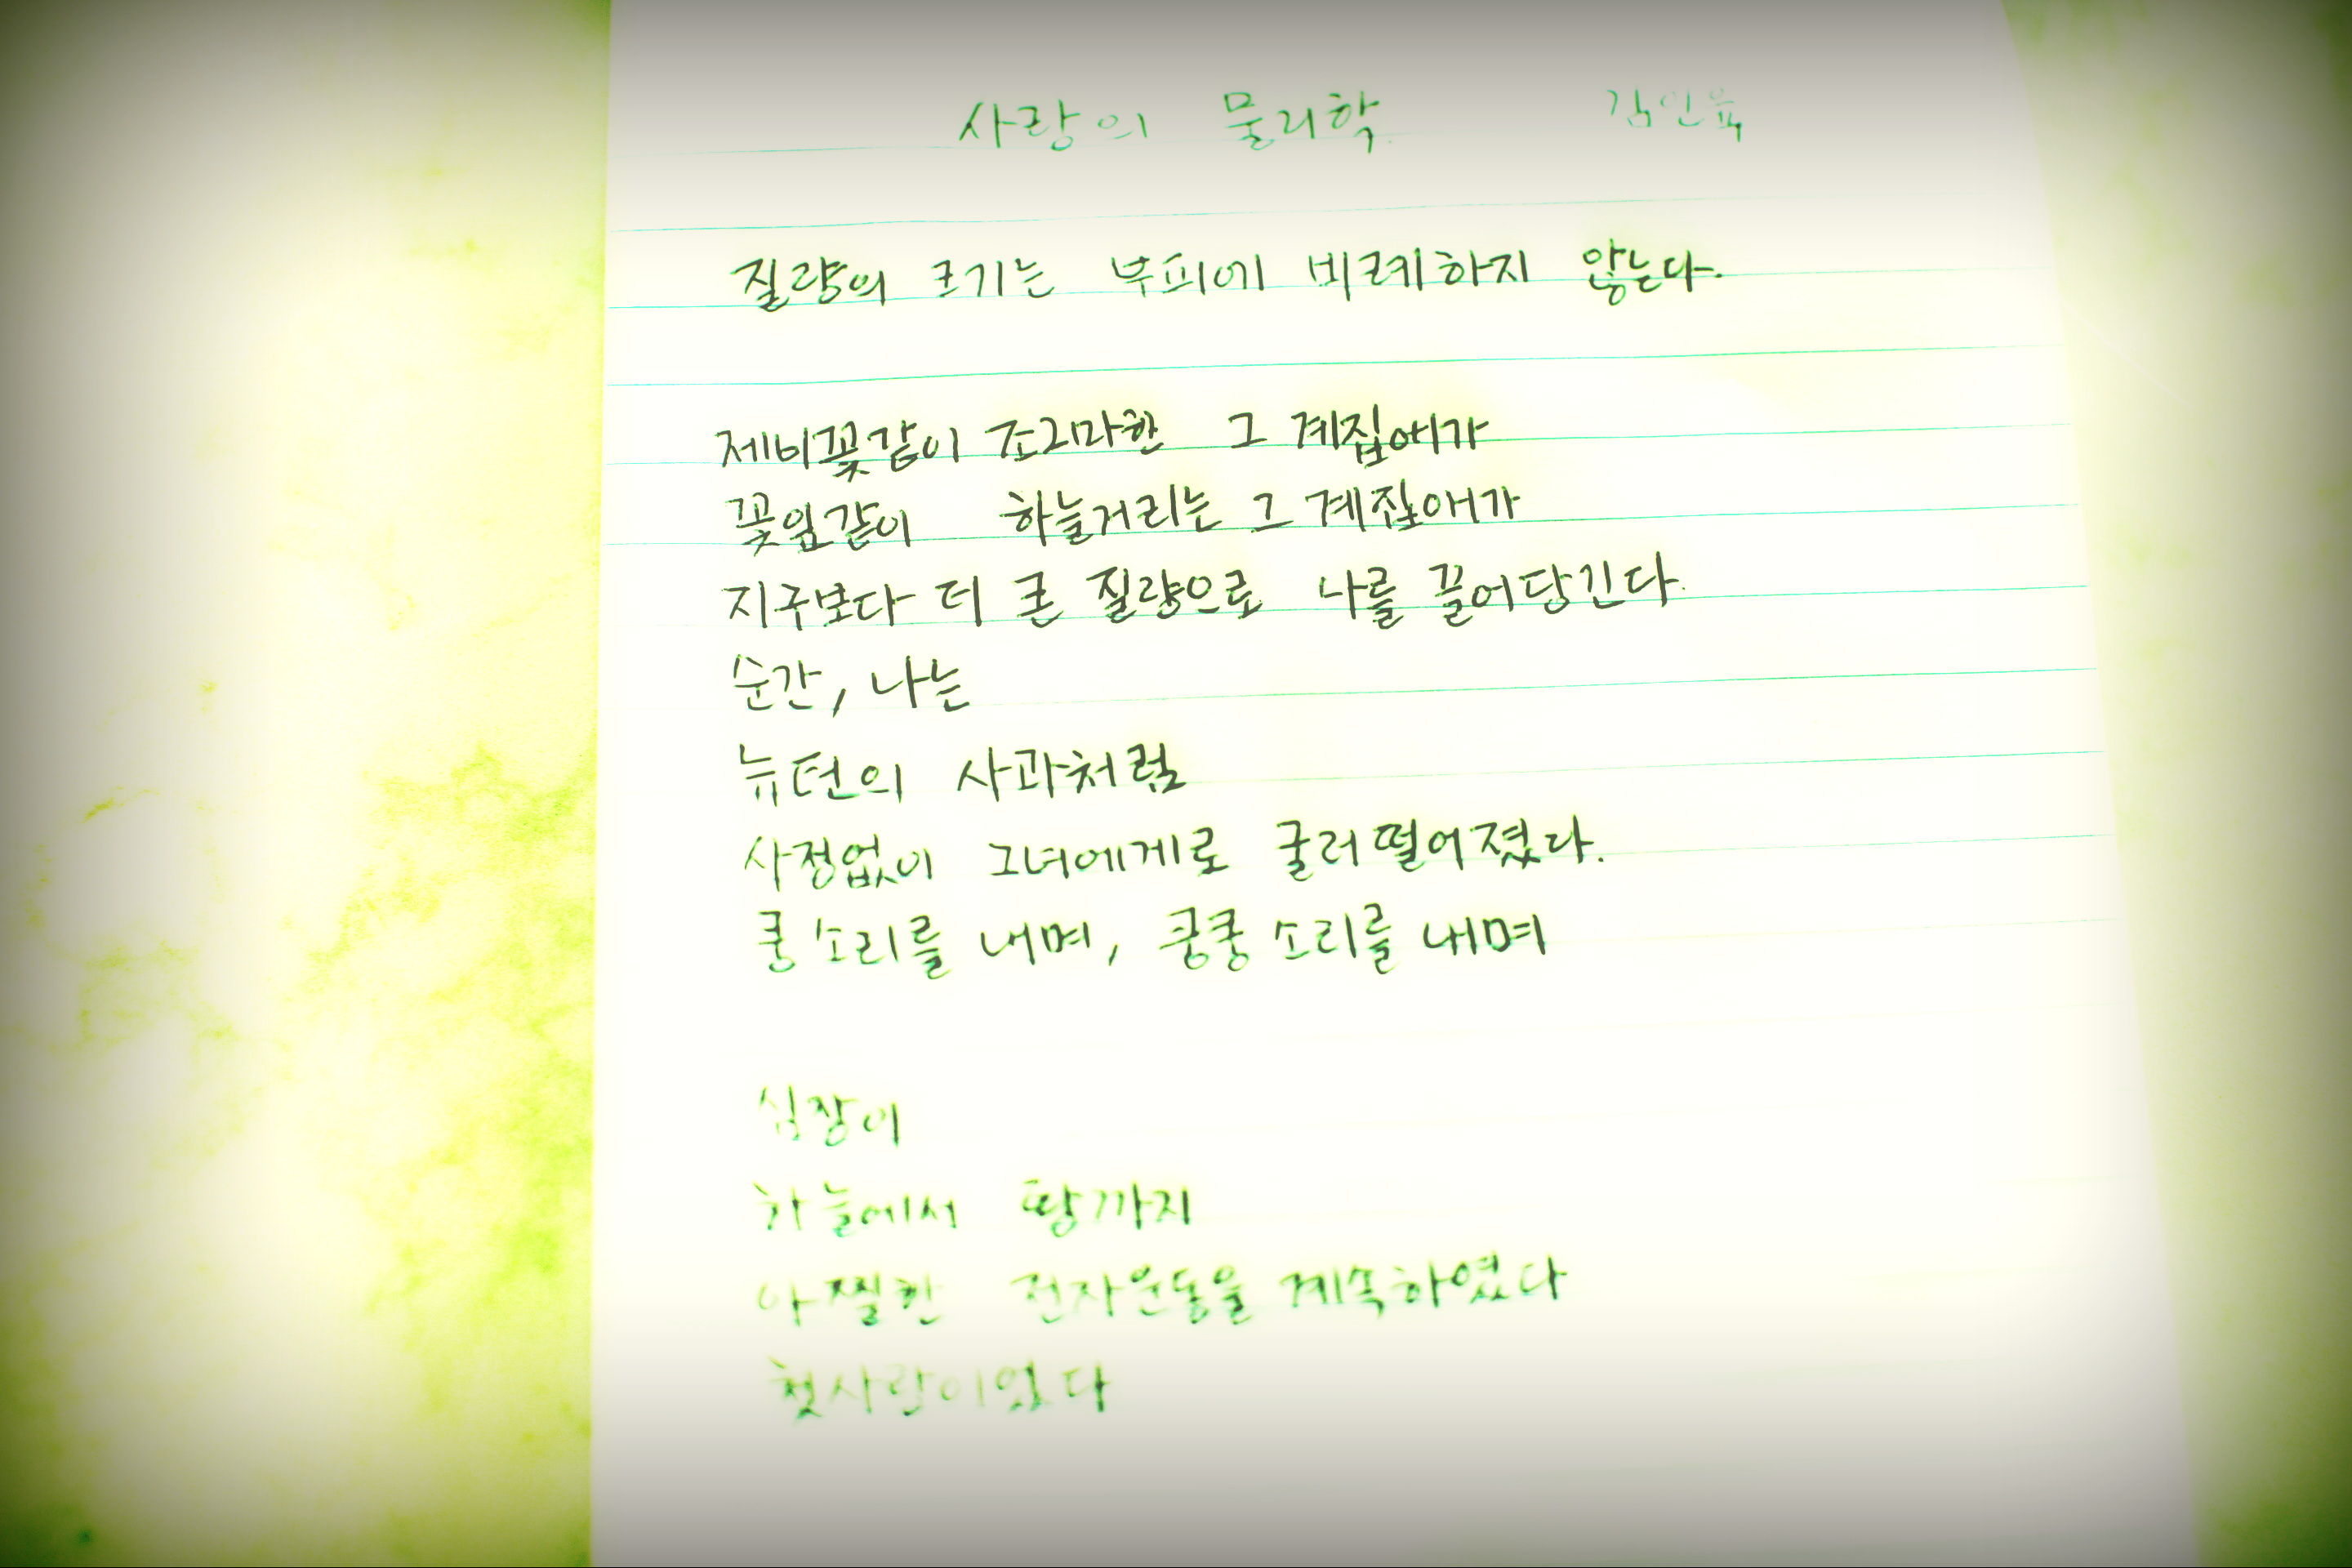 사랑의 물리학 김인육
질량의 크기는 부피에 비례하지 않는다.
제비꽃같이 조그마한 그 계집애가
꽃잎같이 하늘거리는 그 계집애가
지구보다 더 큰 질량으로 나를 끌어당긴다.
순간, 나는
뉴턴의 사과처럼
사정없이 그녀에게로 굴러떨어졌다.
쿵 소리를 내며, 쿵쿵 소리를 내며
심장이
하늘에서 땅까지
아찔한 전자운동을 계속하였다
첫사랑이었다